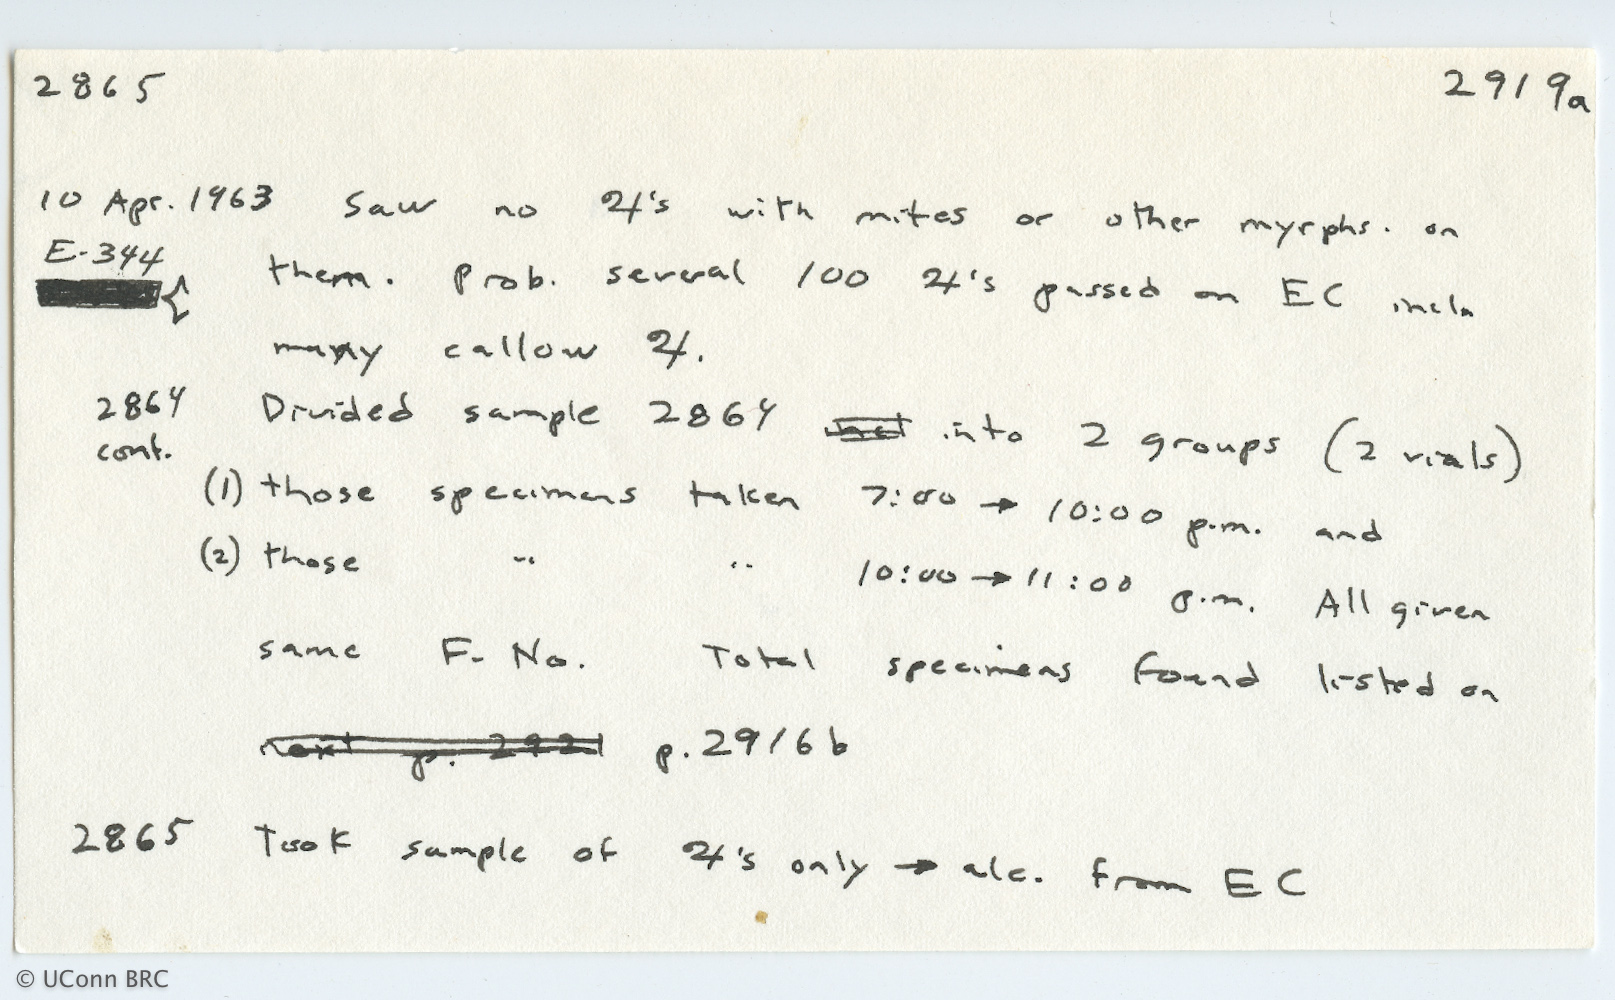 2865 2919a
10 Apr. 1963 Saw no ♃'s with mites or other myrphs. on
E-344 them. Prob. several 100 ♃'s passed on EC incl
many callow ♃.
2864 Divided sample 2864 into 2 groups (2 vials)
cont.
(1) those specimens taken 7:00 → 10:00 p.m. and
(2) those " " 10:00 → 11:00 p.m. All given
same F. No. Total specimens found listed on
next p. 292 p. 2916b
2865 Took sample of ♃'s only → alc. from EC
© UConn BRC